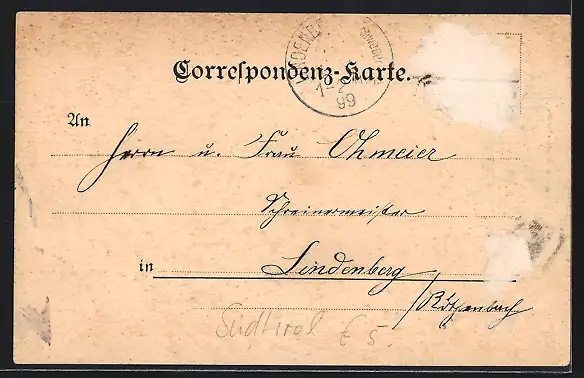 Correspondenz-Karte.
1-2
99
An
Herrn u. Frau Ohmeier
Schreinermeister
in Lindenberg
/Röthenbach
Südtirol € 5.